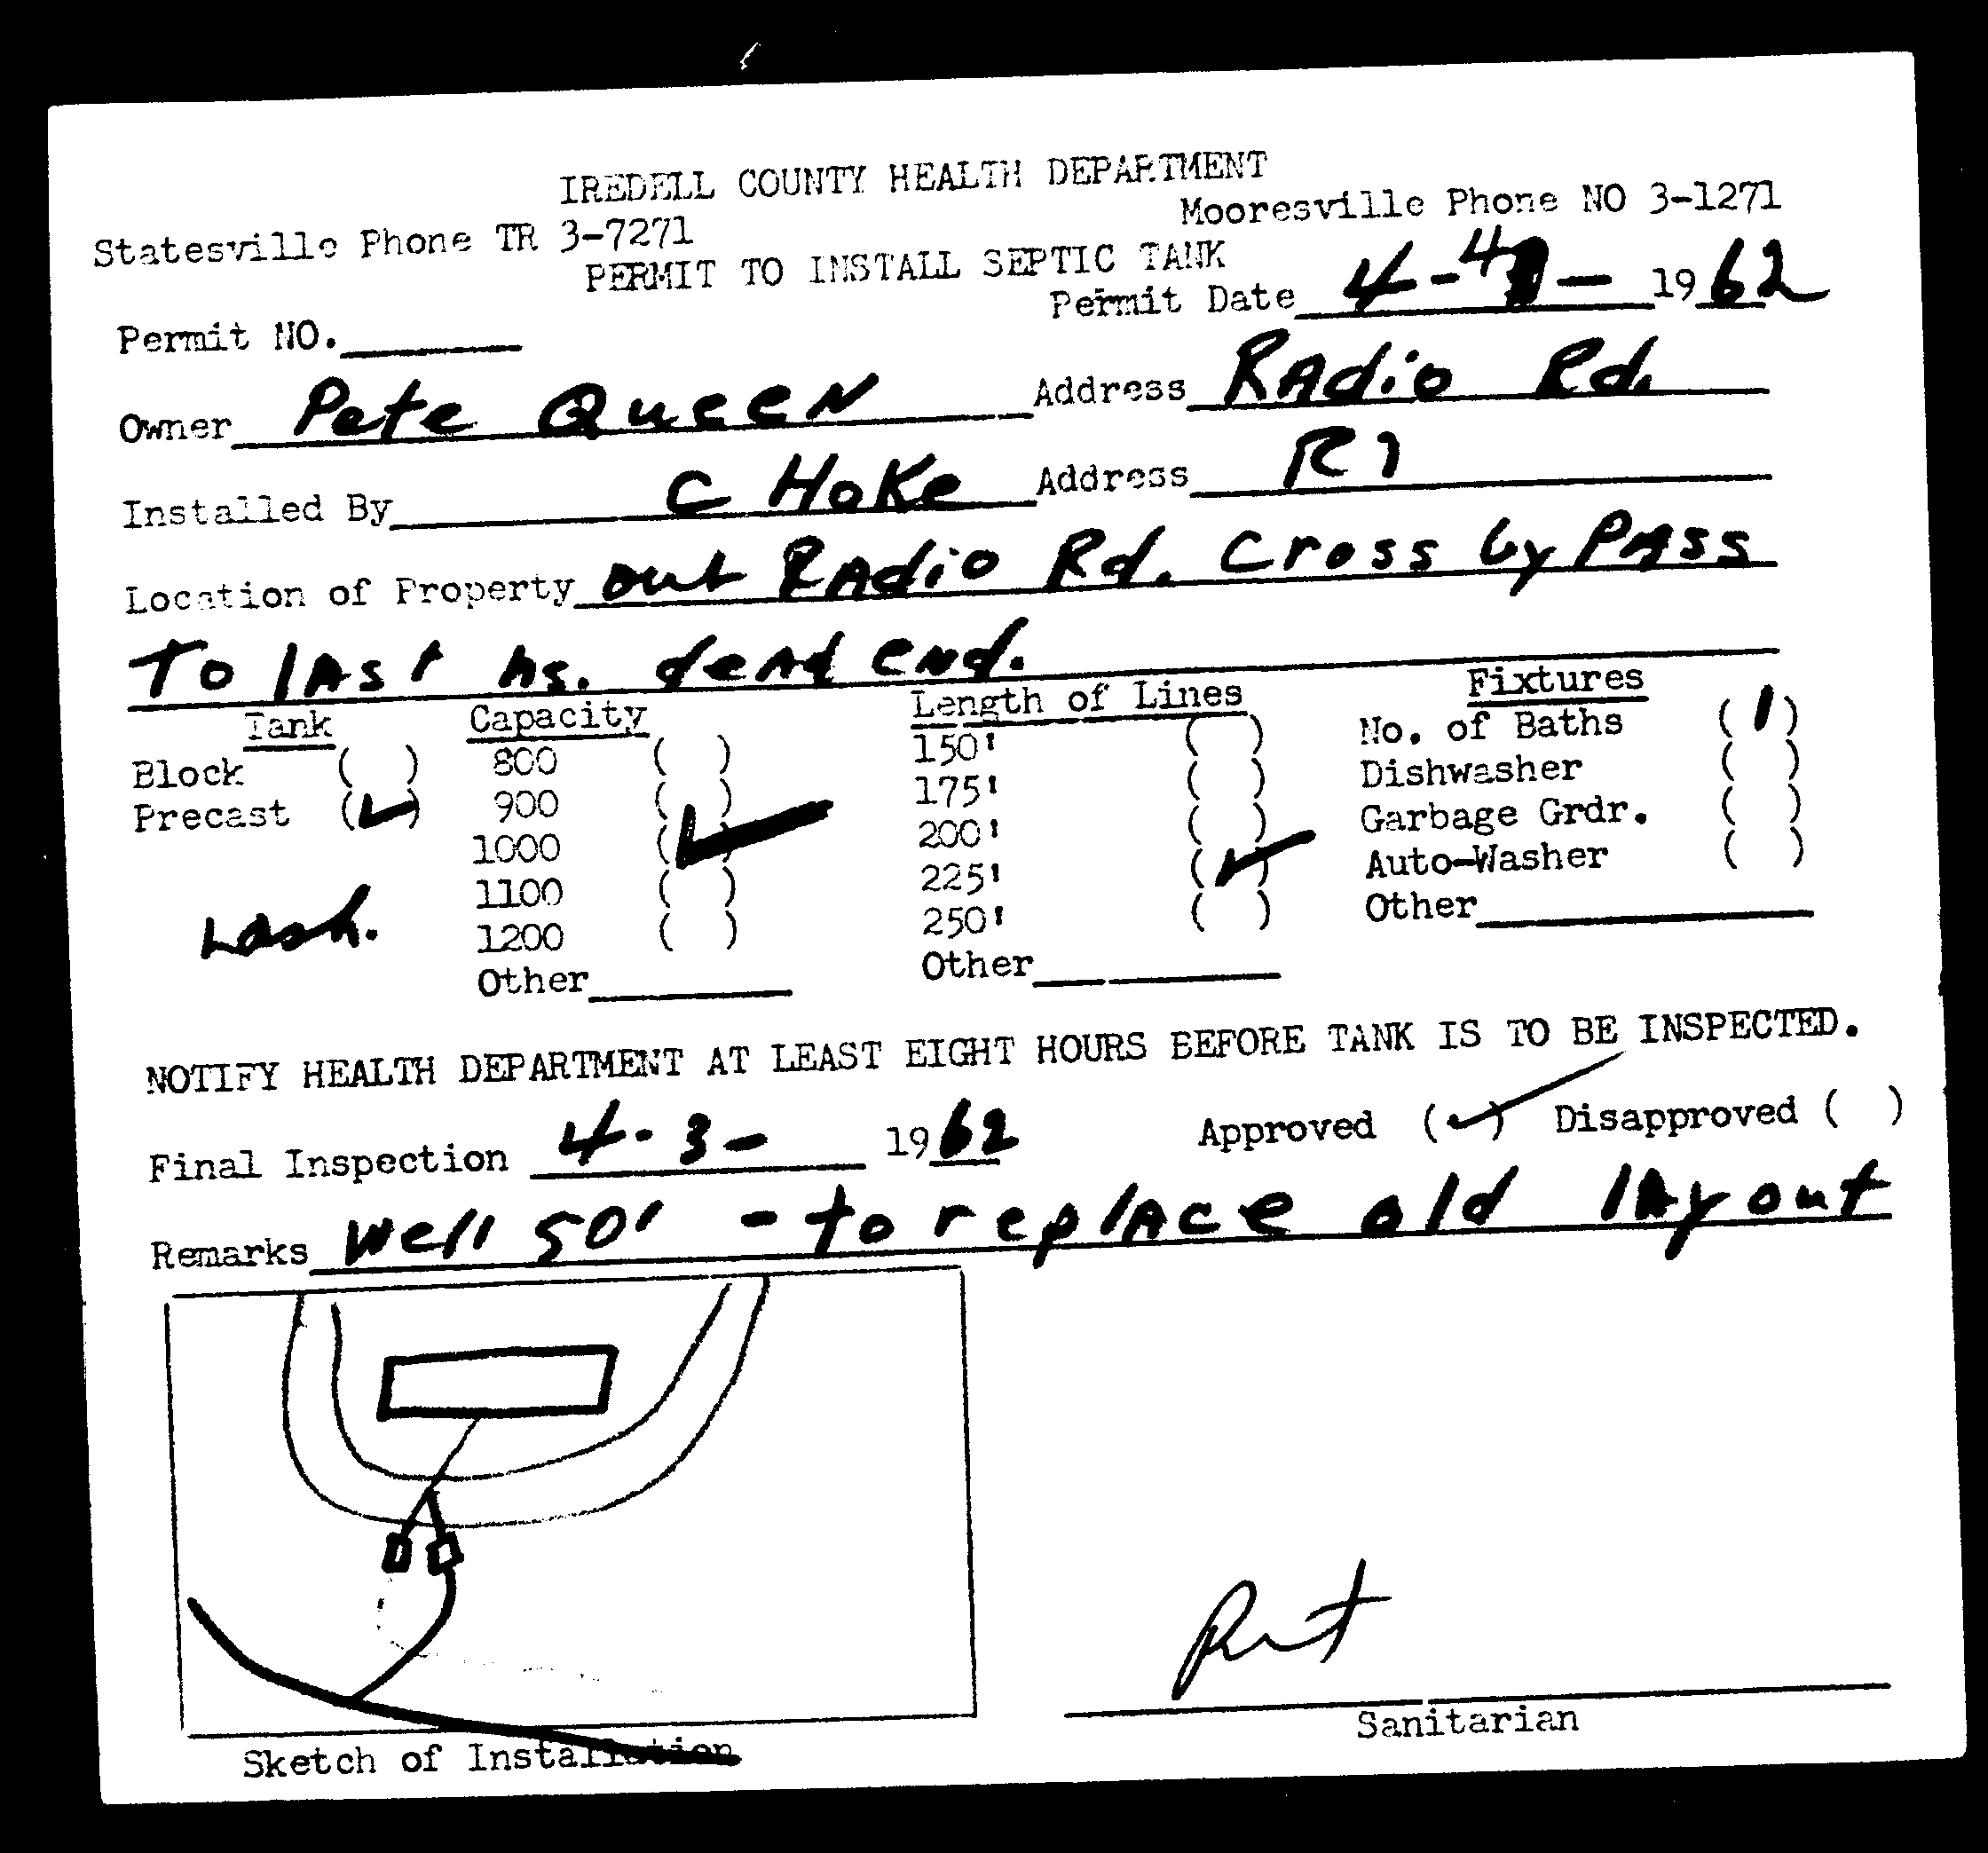 IREDELL COUNTY HEALTH DEPARTMENT
Statesville Phone TR 3-7271 Mooresville Phone NO 3-1271
PERMIT TO INSTALL SEPTIC TANK
Permit NO. Permit Date 4-4 - 1962
Owner Pete Queen Address Radio Rd.
Installed By C Hoke Address R1
Location of Property out Radio Rd. Cross by Pass
To last hs. dead end.
Tank Capacity Length of Lines Fixtures
Block ( ) 800 ( ) 150' ( ) No. of Baths (1)
Precast (✓) 900 ( ) 175' ( ) Dishwasher ( )
1000 (✓) 200' ( ) Garbage Grdr. ( )
1100 ( ) 225' (✓) Auto-Washer ( )
1200 ( ) 250' ( ) Other
Other Other
NOTIFY HEALTH DEPARTMENT AT LEAST EIGHT HOURS BEFORE TANK IS TO BE INSPECTED.
Final Inspection 4-3- 1962 Approved (✓) Disapproved ( )
Remarks Well 50' - to replace old layout
Sanitarian
Sketch of Installation